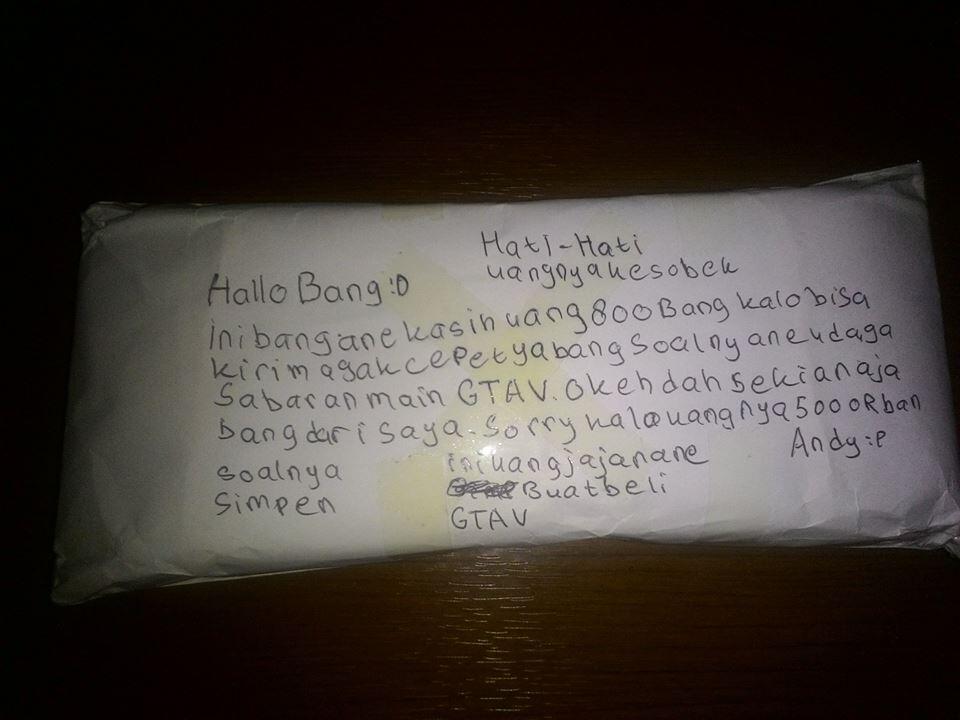 Hati-Hati
uangnya kesobek
Hallo Bang :D
ini bang ane kasih uang 800 Bang kalo bisa
kirim agak cepet ya bang soalny ane udaga
Sabaran main GTAV. Okeh dah sekian aja
bang dari saya. Sorry kalo uangnya 5000Rban
soalnya ini uang jajan ane
simpen Buat beli
GTAV
Andy :P